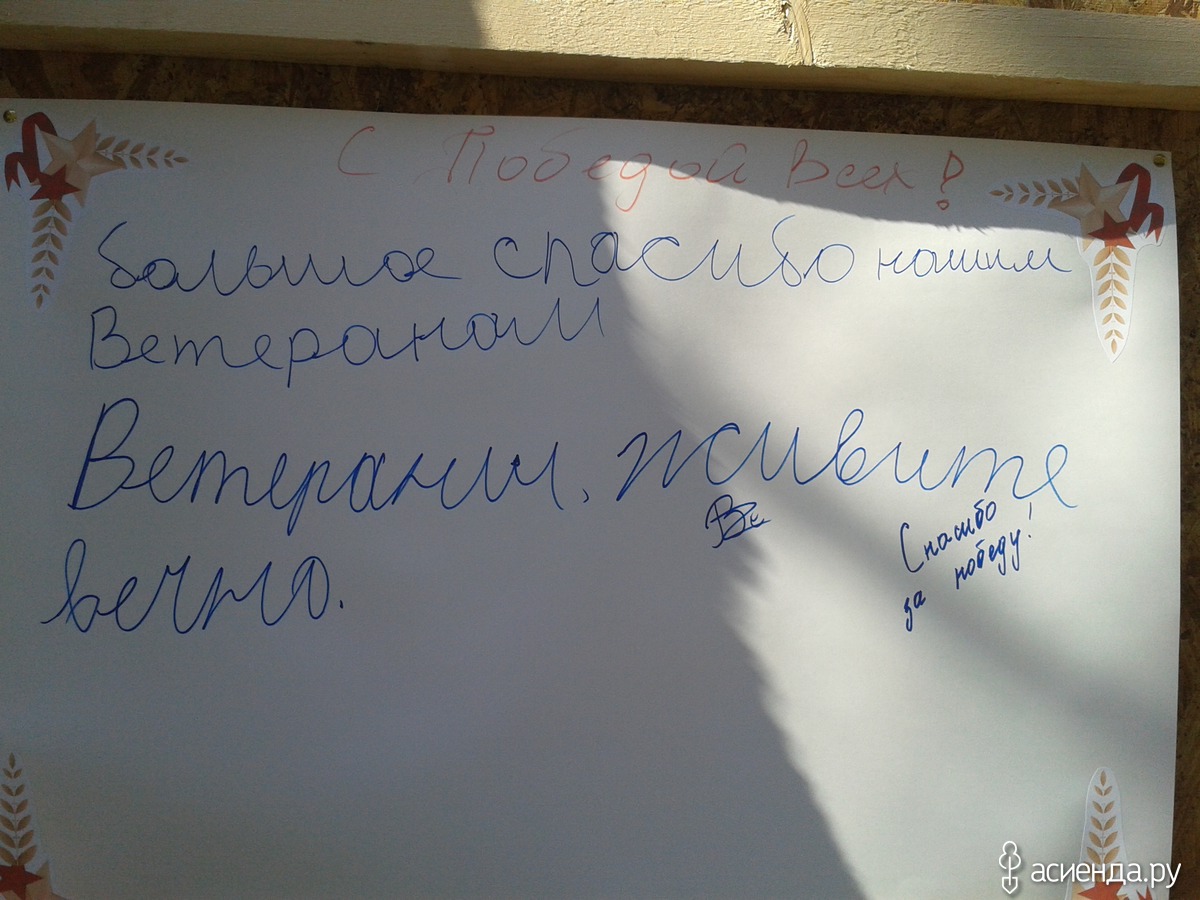 С Победой Всех!
большое спасибо нашим
Ветеранам
Ветераны, живите
вечно.
Ве
Спасибо
за победу!
асиенда.ру